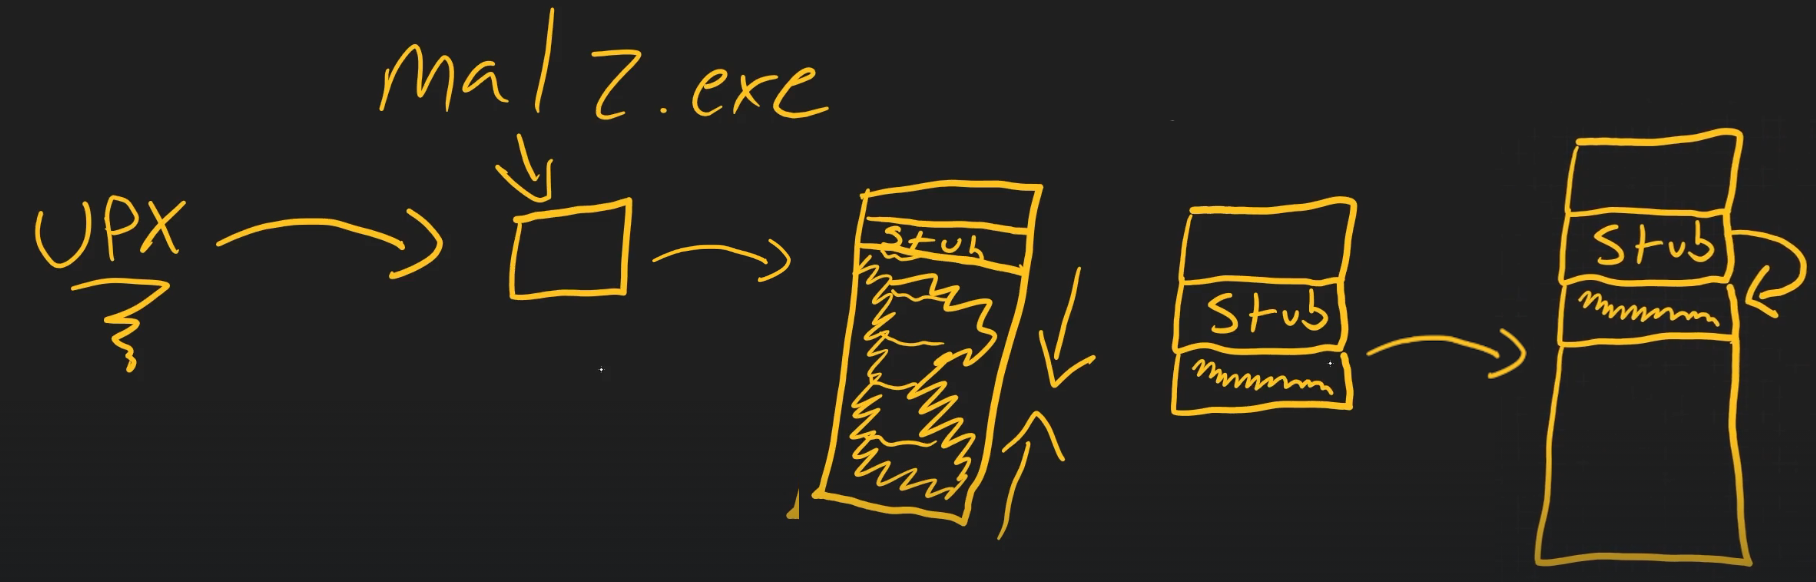 mal2.exe
UPX
Stub
Stub
Stub